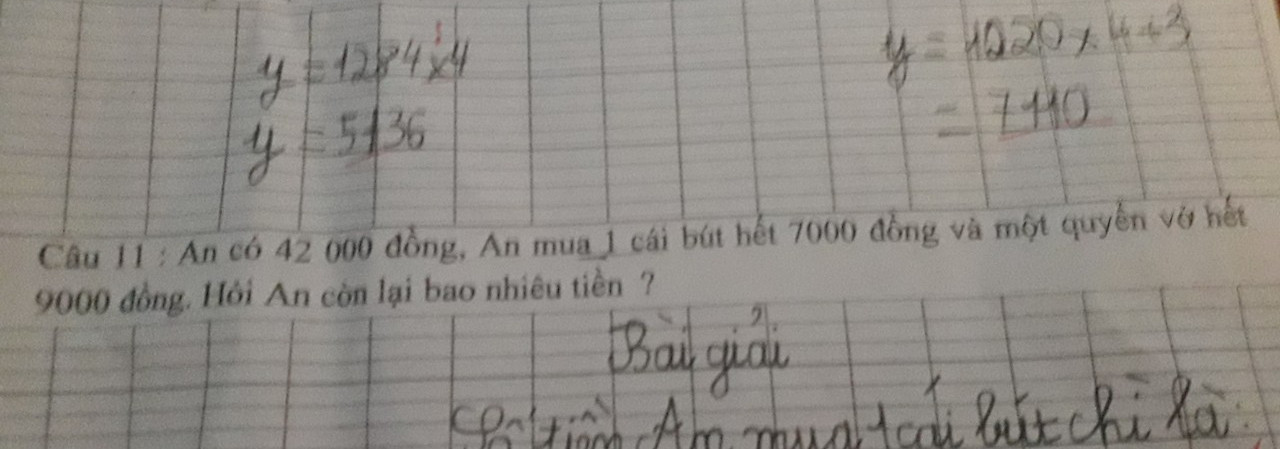 y = 1284 x 4
y = 5136
y = 1020 x 4 + 3
= 7110
Câu 11 : An có 42 000 đồng, An mua 1 cái bút hết 7000 đồng và một quyển vở hết
9000 đồng. Hỏi An còn lại bao nhiêu tiền ?
Bài giải
Số tiền An mua 1 cái bút chì là: